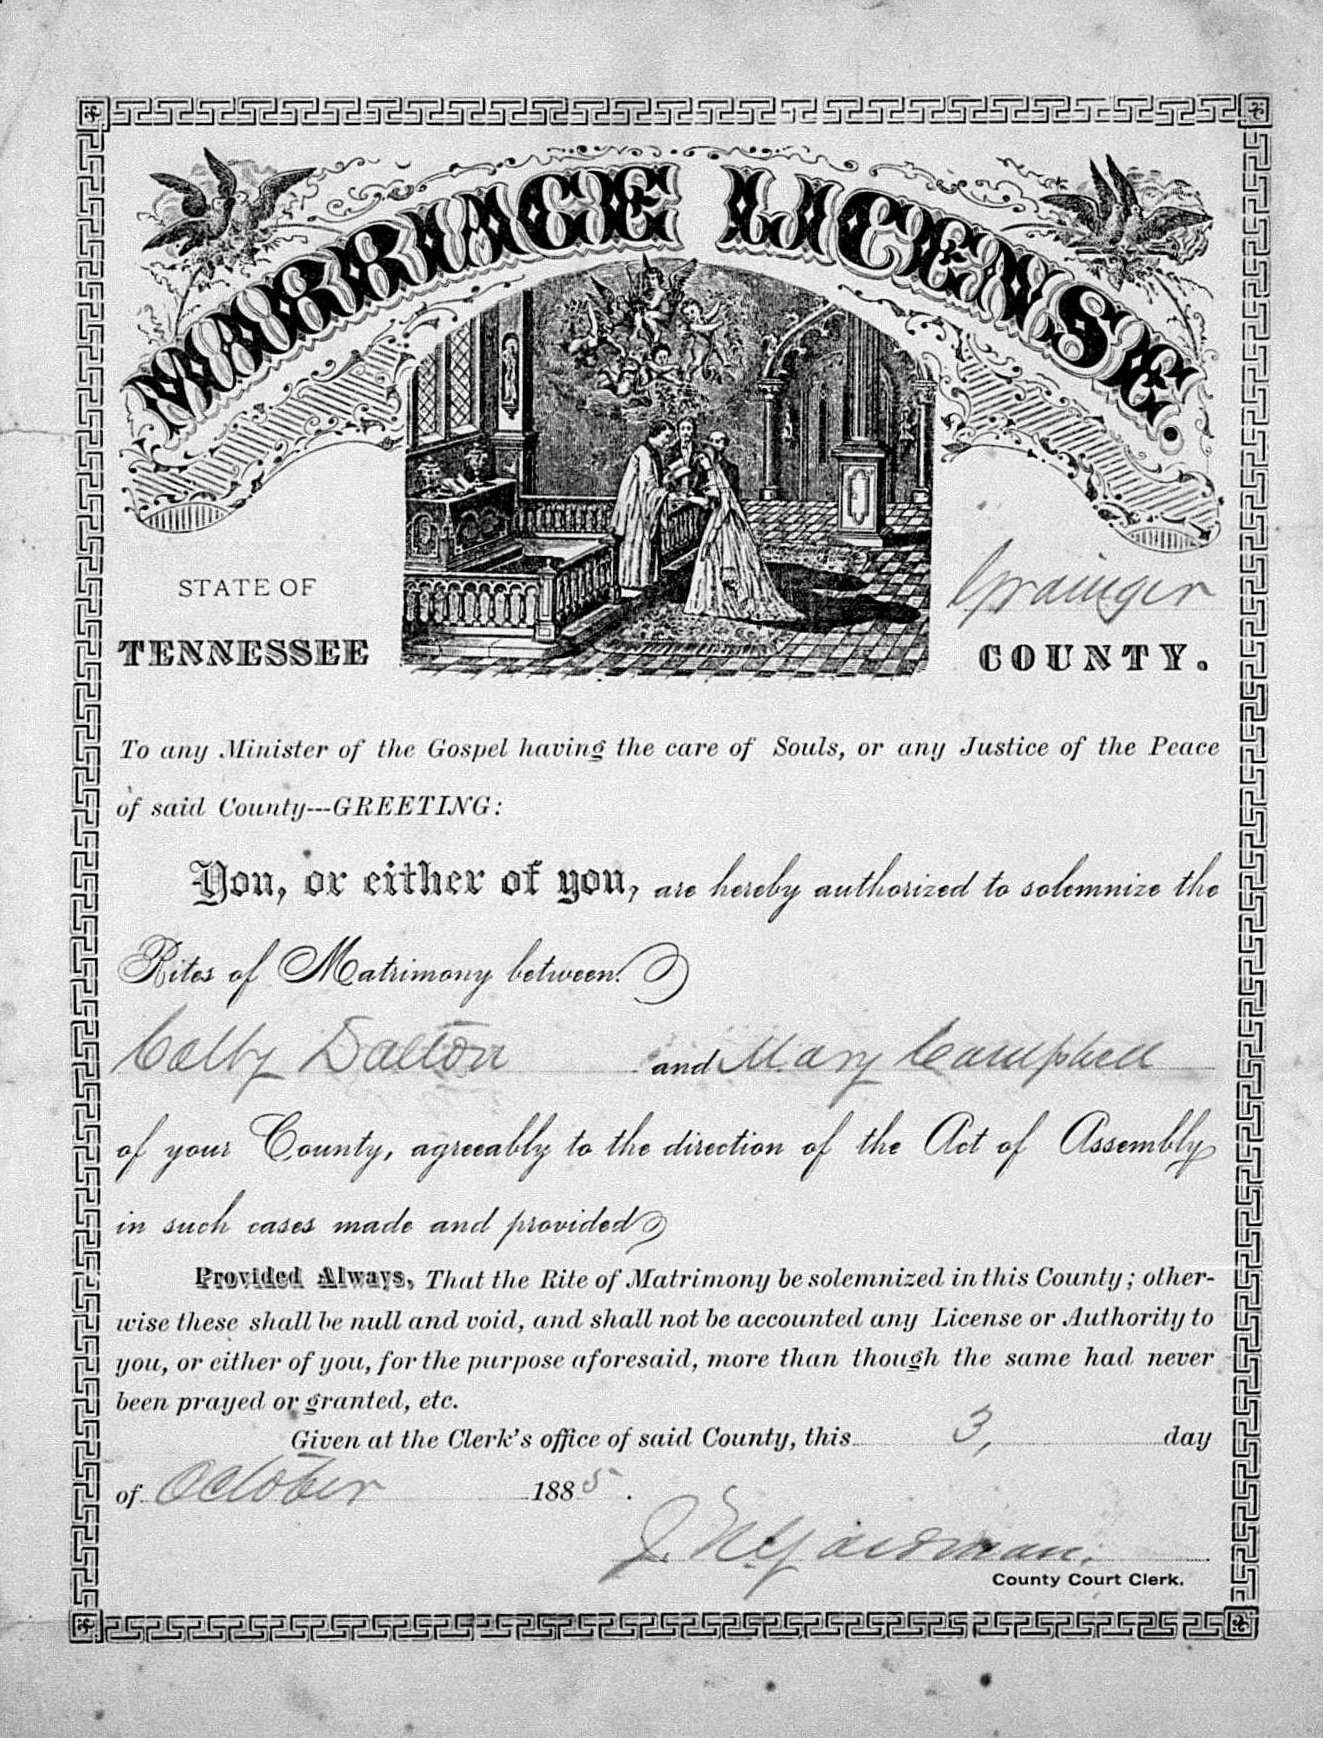 MARRIAGE LICENSE.
STATE OF
TENNESSEE
Grainger
COUNTY.
To any Minister of the Gospel having the care of Souls, or any Justice of the Peace
of said County---GREETING:
You, or either of you, are hereby authorized to solemnize the
Rites of Matrimony between
Colby Dalton and Mary Campbell
of your County, agreeably to the direction of the Act of Assembly
in such cases made and provided
Provided Always, That the Rite of Matrimony be solemnized in this County; other-
wise these shall be null and void, and shall not be accounted any License or Authority to
you, or either of you, for the purpose aforesaid, more than though the same had never
been prayed or granted, etc.
Given at the Clerk's office of said County, this 3, day
of October 1885.
J.
County Court Clerk.